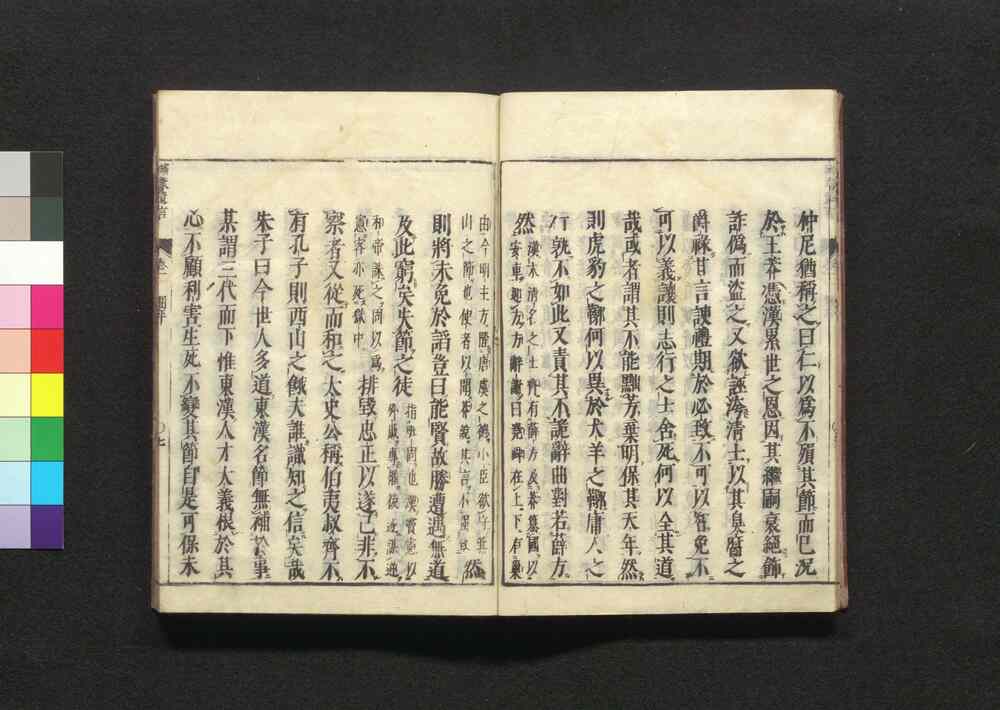 仲尼猶稱之曰仁以爲不殞其節而已況
於王莽憑漢累世之恩因其繼嗣衰絕飾
詐僞而盜之又欲誣洿清士以其臭腐之
爵祿甘言諛禮期於必致不可以智免不
可以義讓則志行之士舍死何以全其道
哉或者謂其不能黜芳棄明保其天年然
則虎豹之鞹何以異於犬羊之鞹庸人之
行孰不如此又責其不詭辭曲對若薛方
然
漢末清名之士有薛方及莽篡國以
安車迎方方辭謝曰堯舜在上下有巢
由今明主方隆唐虞之德小臣欲守箕
山之節也使者以聞莽說其言不強致
然
則將未免於諂豈曰能賢故勝遭遇無道
及此窮矣失節之徒
指班固也漢竇憲以
和帝誅之固以爲
憲客亦死獄中
排毀忠正以遂己非不
察者又從而和之太史公稱伯夷叔齊不
有孔子則西山之餓夫誰識知之信矣哉
朱子曰今世人多道東漢名節無補於事
某謂三代而下惟東漢人才大義根於其
心不顧利害生死不變其節自是可保未
卷一
七